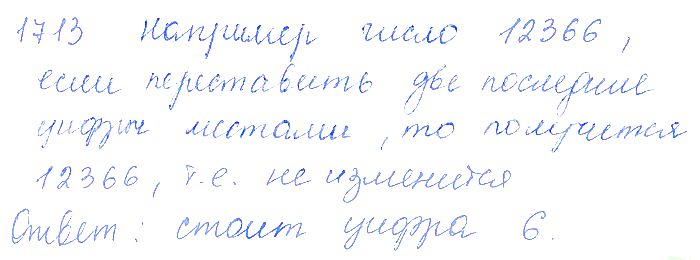 1713 Например число 12366,
если переставить две последние
цифры местами, то получится
12366, т.е. не изменится
Ответ: стоит цифра 6.